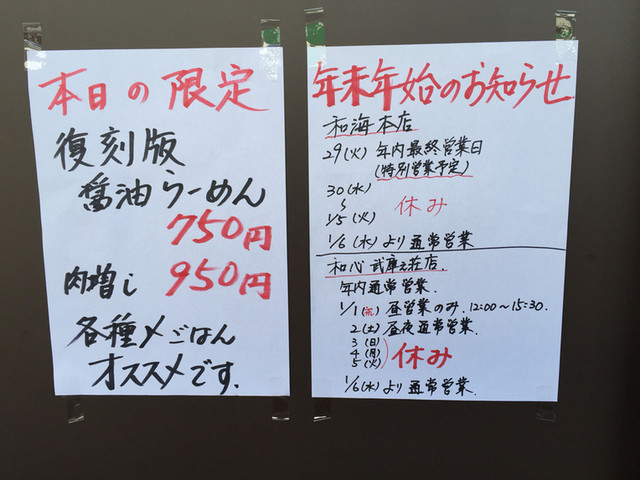 本日の限定
復刻版
醤油らーめん
750円
肉増し 950円
各種〆ごはん
オススメです.
年末年始のお知らせ
和海本店
29(火) 年内最終営業日
(特別営業予定)
30(水)
〜
1/5(火)
休み
1/6(水)より通常営業
和心 武庫之荘店.
年内通常営業.
1/1(祝) 昼営業のみ. 12:00〜15:30.
2(土) 昼夜通常営業.
3(日)
4(月)
5(火)
休み
1/6(水)より通常営業.